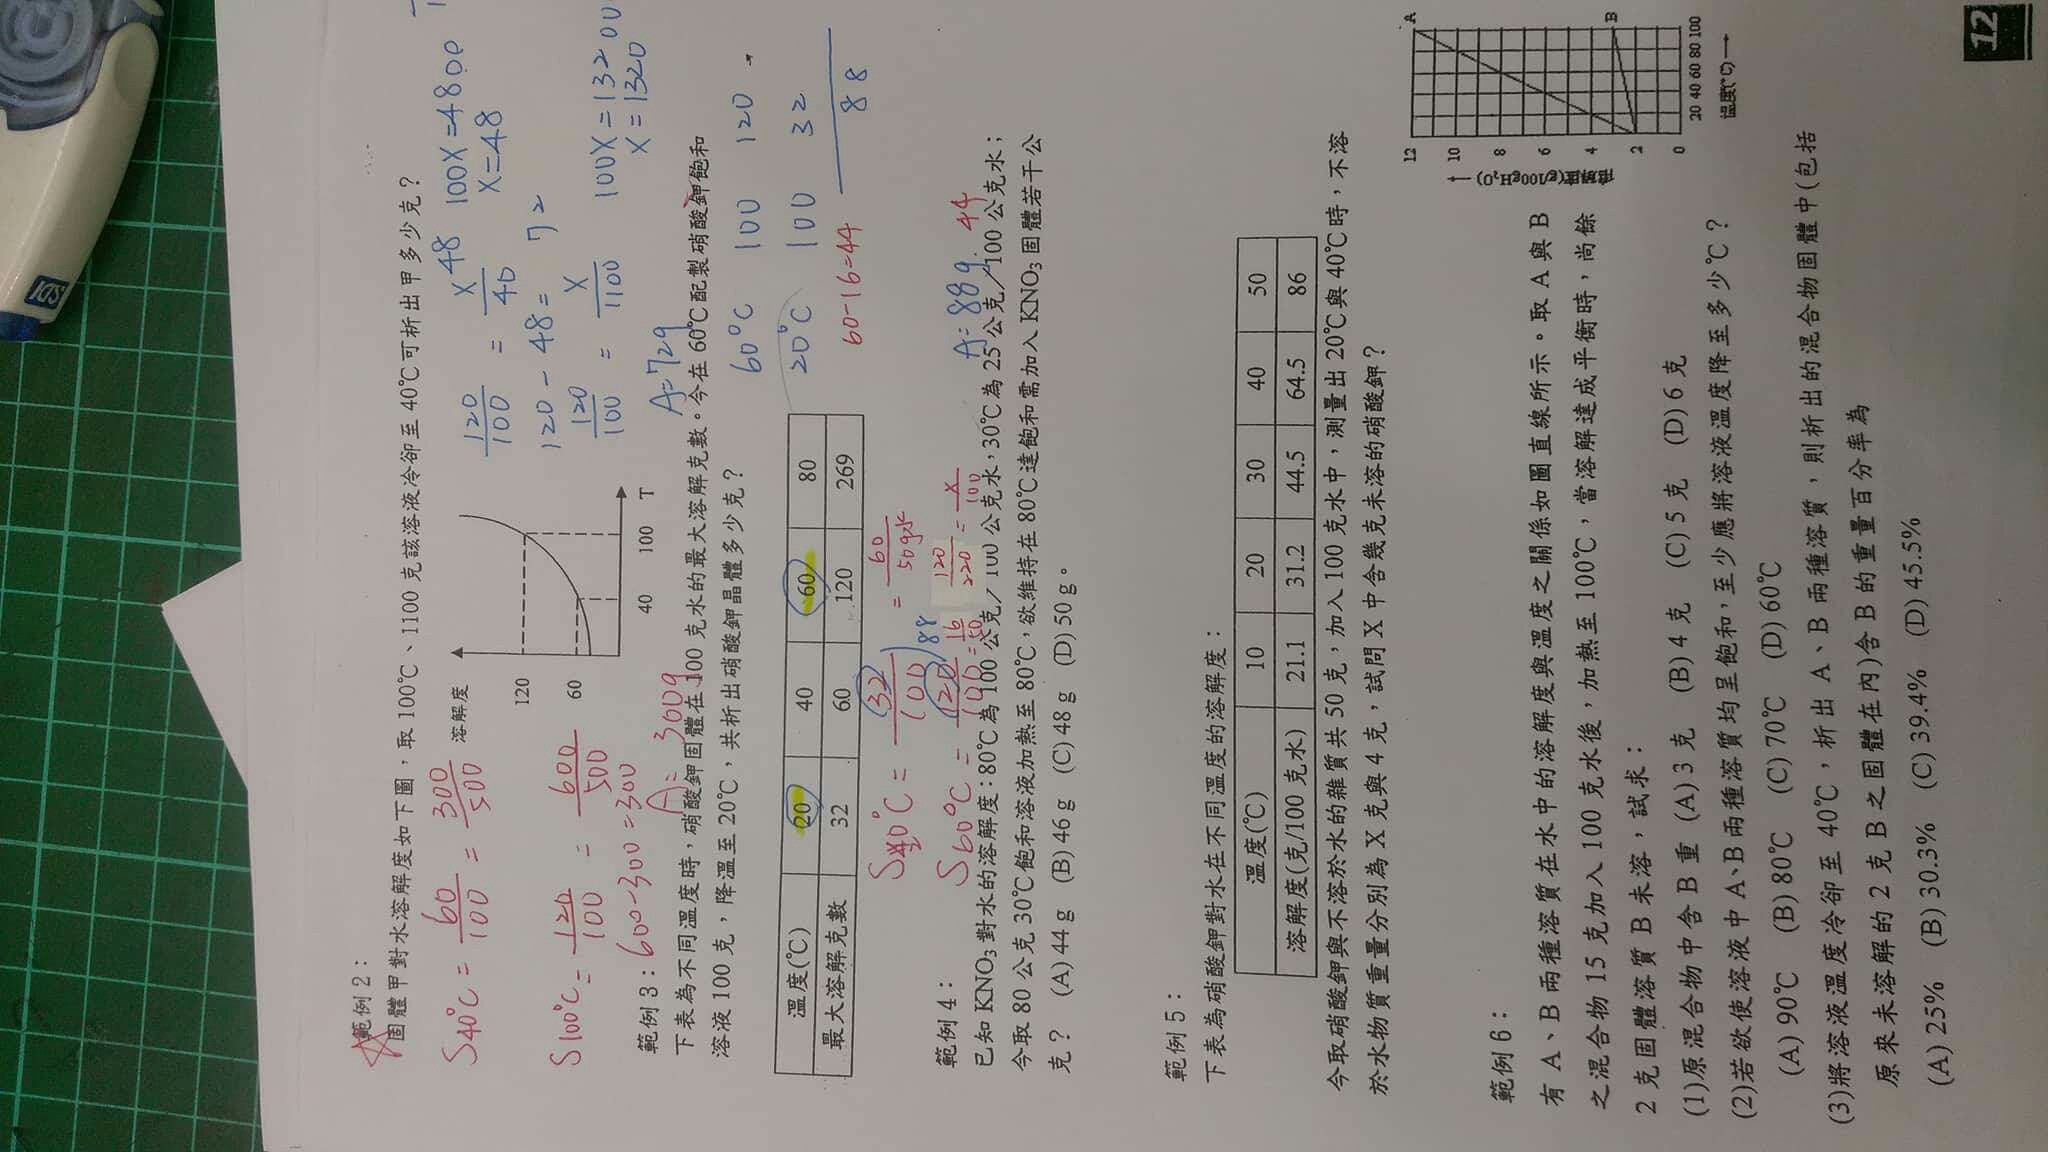 範例 2：
固體甲對水溶解度如下圖，取 100℃、1100 克該溶液冷卻至 40℃可析出甲多少克？
S40℃ = 60/100 = 300/500
S100℃ = 120/100 = 600/500
600-300=300
A= 300g
溶解度
120
60
40 100 T
120/100 = X/40 48 100X=4800
X=48
120-48= 72
120/100 = X/1100 100X=13200
X=1320
A=72g
範例 3：
下表為不同溫度時，硝酸鉀固體在 100 克水的最大溶解克數。今在 60℃配製硝酸鉀飽和
溶液 100 克，降溫至 20℃，共析出硝酸鉀晶體多少克？
溫度(℃) 20 40 60 80
最大溶解克數 32 60 120 269
60℃ 100 120
20℃ 100 32
88
60-16=44
A=88g. 44
S20℃ = 32/100 = 60/50g水
S60℃ = 120/100 = 16/50
88
120/220 = X/100
範例 4：
已知 KNO₃ 對水的溶解度：80℃為 100 公克／100 公克水，30℃為 25 公克／100 公克水；
今取 80 公克 30℃飽和溶液加熱至 80℃，欲維持在 80℃達飽和需加入 KNO₃ 固體若干公
克？ (A) 44 g (B) 46 g (C) 48 g (D) 50 g。
範例 5：
下表為硝酸鉀對水在不同溫度的溶解度：
溫度(℃) 10 20 30 40 50
溶解度(克/100 克水) 21.1 31.2 44.5 64.5 86
今取硝酸鉀與不溶於水的雜質共 50 克，加入 100 克水中，測量出 20℃與 40℃時，不溶
於水物質重量分別為 X 克與 4 克，試問 X 中含幾克未溶的硝酸鉀？
範例 6：
有 A、B 兩種溶質在水中的溶解度與溫度之關係如圖直線所示。取 A 與 B
之混合物 15 克加入 100 克水後，加熱至 100℃，當溶解達成平衡時，尚餘
2 克固體溶質 B 未溶，試求：
(1)原混合物中含 B 重 (A) 3 克 (B) 4 克 (C) 5 克 (D) 6 克
(2)若欲使溶液中 A、B 兩種溶質均呈飽和，至少應將溶液溫度降至多少℃？
(A) 90℃ (B) 80℃ (C) 70℃ (D) 60℃
(3)將溶液溫度冷卻至 40℃，析出 A、B 兩種溶質，則析出的混合物固體中(包括
原來未溶解的 2 克 B 之固體在內)含 B 的重量百分率為
(A) 25% (B) 30.3% (C) 39.4% (D) 45.5%
溶解度(g/100gH₂O)→
12
10
8
6
4
2
0
A
B
20 40 60 80 100
溫度(℃)→
12
SDI